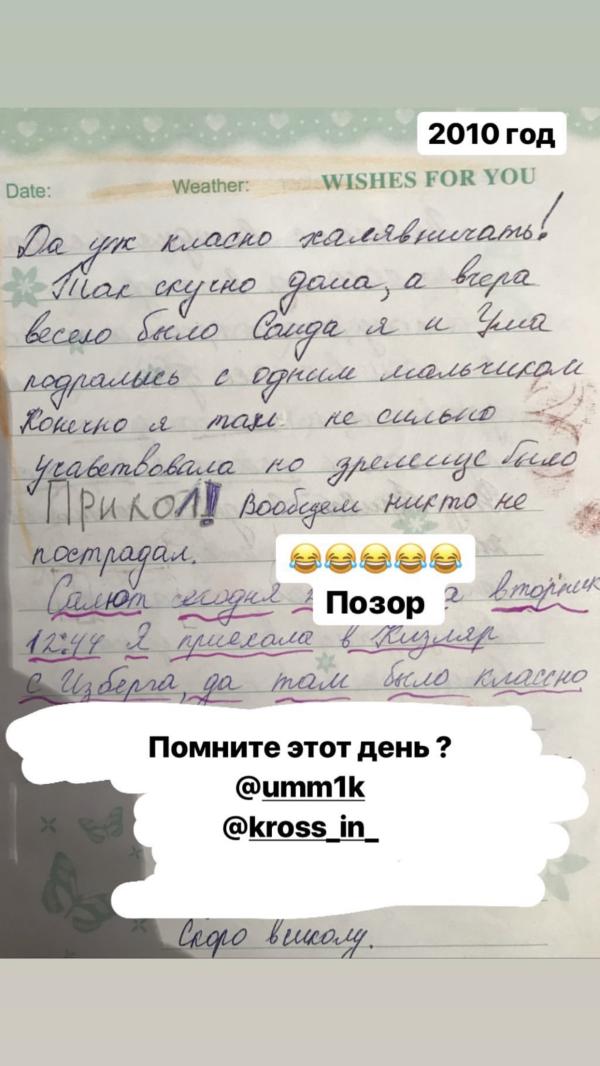 2010 год
Date: Weather: WISHES FOR YOU
Да уж класно халявничать!
Так скучно дома, а вчера
весело было Саида я и Ума
подрались с одним мальчиком
Конечно я так не сильно
учавствовала но зрелеще было
ПРИКОЛ! Вообщем никто не
пострадал.
😂😂😂😂😂
Салют сегодня вторник
Позор
12:44 Я приехала в Кизляр
с Избегра, да там было классно
Помните этот день ?
@umm1k
@kross_in_
Скоро в школу.